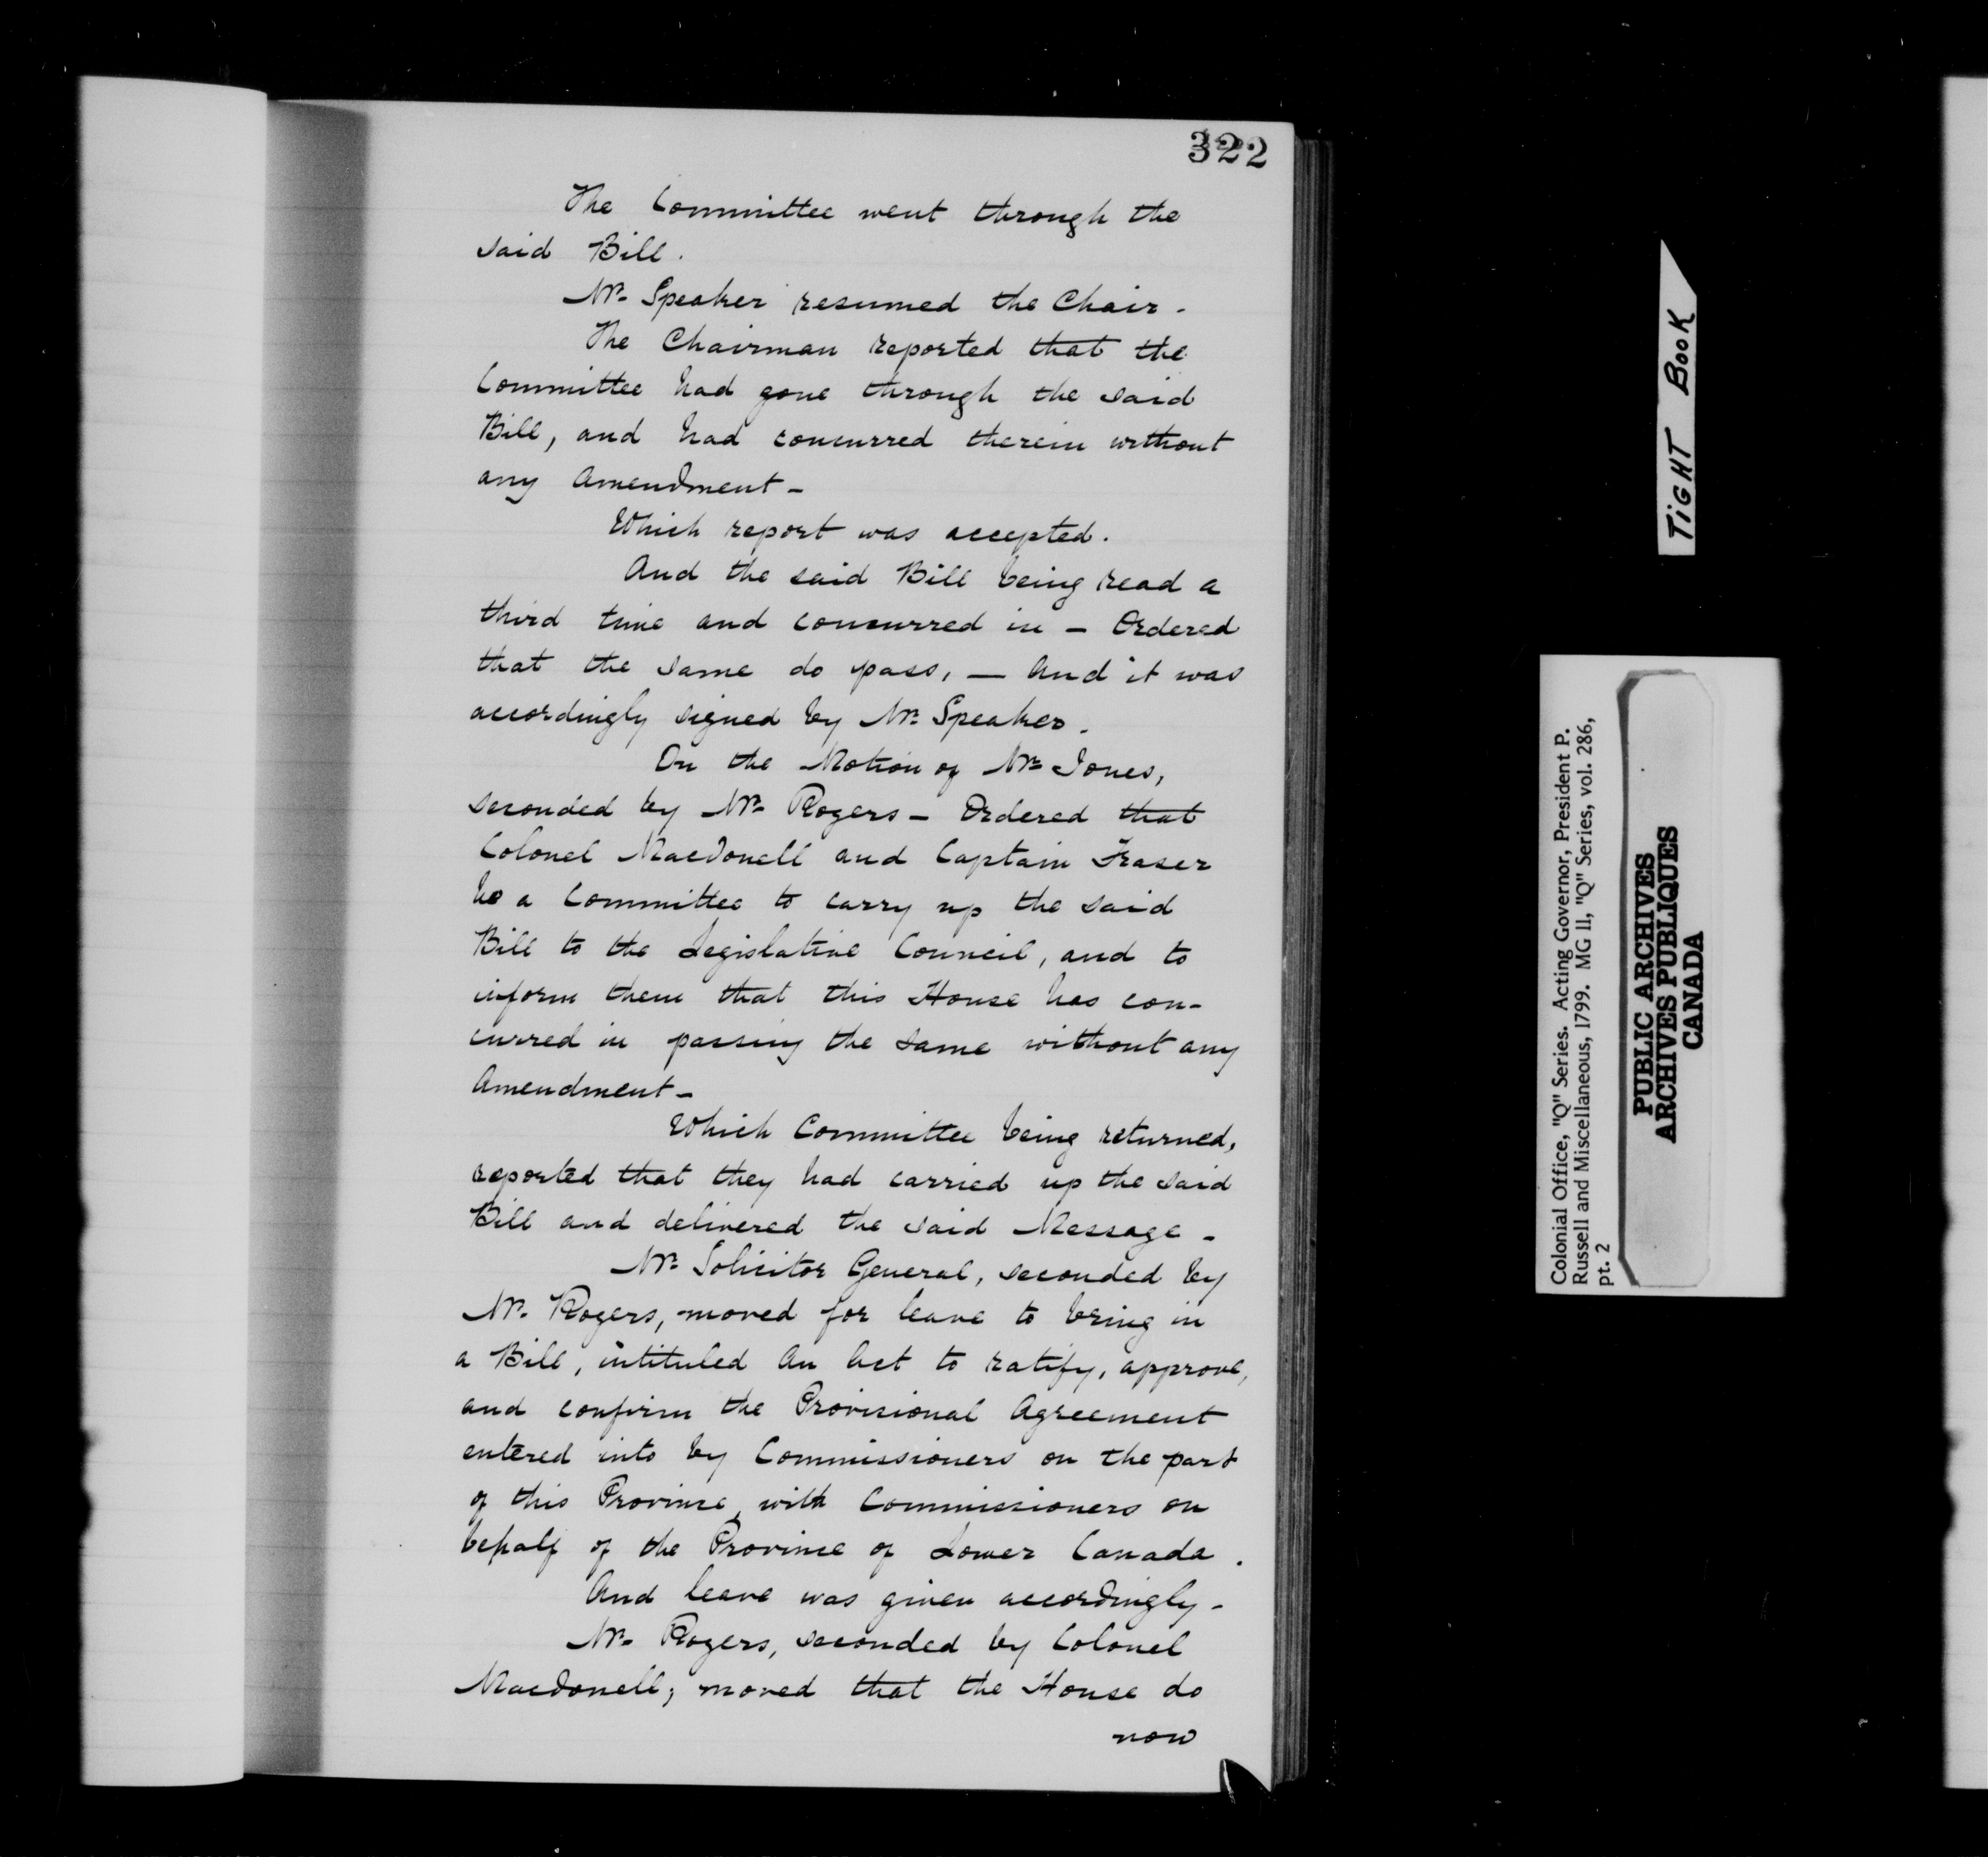 322
The Committee went through the
said Bill.
Mr. Speaker resumed the Chair -
The Chairman reported that the
Committee had gone through the said
Bill, and had concurred therein without
any Amendment -
Which report was accepted.
And the said Bill being read a
third time and concurred in - Ordered
that the same do pass, - And it was
accordingly signed by Mr. Speaker.
On the Motion of Mr. Jones,
seconded by Mr. Rogers - Ordered that
Colonel Macdonell and Captain Fraser
be a Committee to carry up the said
Bill to the Legislative Council, and to
inform them that this House has con-
curred in passing the same without any
Amendment -
Which Committee being returned,
reported that they had carried up the said
Bill and delivered the said Message -
Mr. Solicitor General, seconded by
Mr. Rogers, moved for leave to bring in
a Bill, intituled An Act to ratify, approve,
and confirm the Provisional Agreement
entered into by Commissioners on the part
of this Province, with Commissioners on
behalf of the Province of Lower Canada.
And leave was given accordingly -
Mr. Rogers, seconded by Colonel
Macdonell; moved that the House do
now
TIGHT BOOK
Colonial Office, "Q" Series. Acting Governor, President P.
Russell and Miscellaneous, 1799. MG 11, "Q" Series, vol. 286,
pt. 2
PUBLIC ARCHIVES
ARCHIVES PUBLIQUES
CANADA